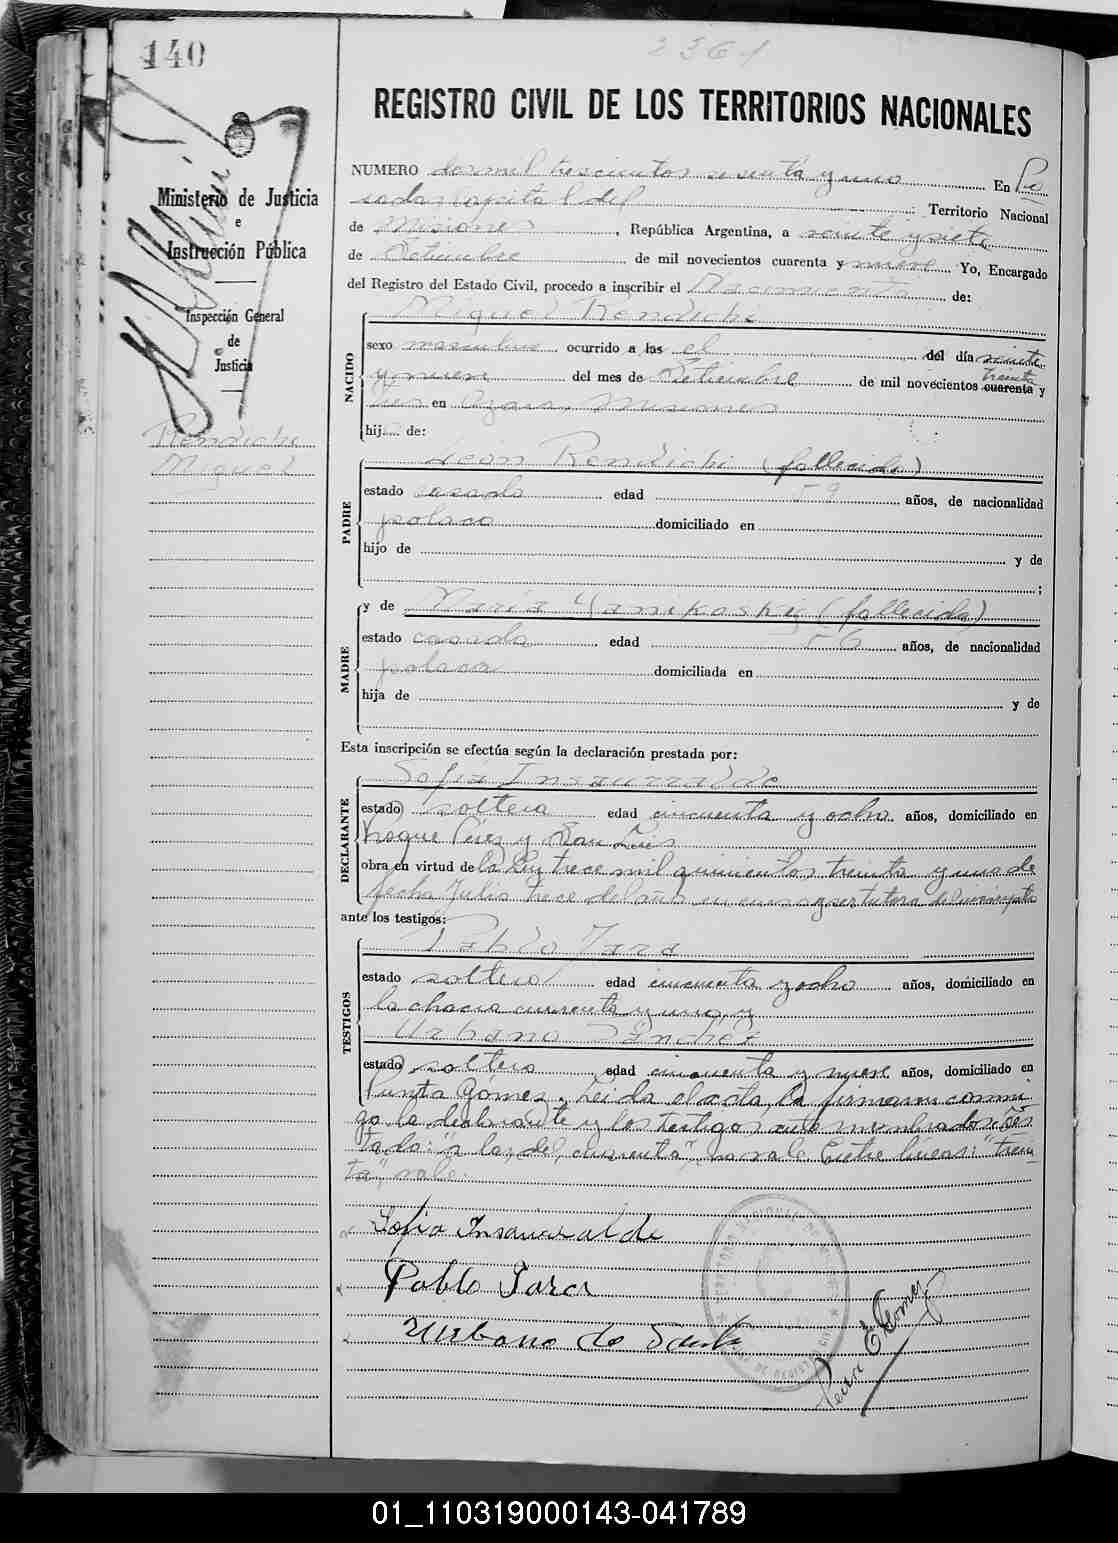 140
2361
REGISTRO CIVIL DE LOS TERRITORIOS NACIONALES
Ministerio de Justicia
e
Instrucción Pública
Inspección General
de
Justicia
Rendiche
Miguel
NUMERO dos mil trescientos sesenta y uno En Po
sadas Capital del Territorio Nacional
de Misiones, República Argentina, a veinte y siete
de Setiembre de mil novecientos cuarenta y nueve Yo, Encargado
del Registro del Estado Civil, procedo a inscribir el Nacimiento de:
NACIDO
Miguel Rendiche
sexo masculino ocurrido a las el del día veinte
y nueve del mes de Setiembre de mil novecientos cuarenta treinta y
tres en Azara, Misiones
hij de:
PADRE
León Rendichi (fallecido)
estado casado edad 59 años, de nacionalidad
polaco domiciliado en
hijo de y de
;
MADRE
y de María Yanikoski (fallecida)
estado casada edad 56 años, de nacionalidad
polaca domiciliada en
hija de y de
Esta inscripción se efectúa según la declaración prestada por:
DECLARANTE
Sofía Insaurralde
estado soltera edad cincuenta y ocho años, domiciliado en
Roque Pérez y San Luis
obra en virtud de la Ley trece mil quinientos treinta y uno de
fecha Julio trece del año en curso y ser tutora del inscripto
ante los testigos:
TESTIGOS
Pablo Jara
estado soltero edad cincuenta y ocho años, domiciliado en
la chacra cuarenta y uno, y
Urbano Sánchez
estado soltero edad cincuenta y nueve años, domiciliado en
Punta Gómez. Leida el acta, la firmaron conmi
go la declarante y los testigos nombrados: Tes
tado: "a las, del, cuarenta", no vale. Entre líneas: "trein
ta", vale.
Sofia Insaurralde
Pablo Jara
Urbano de
Gomez
01_110319000143-041789